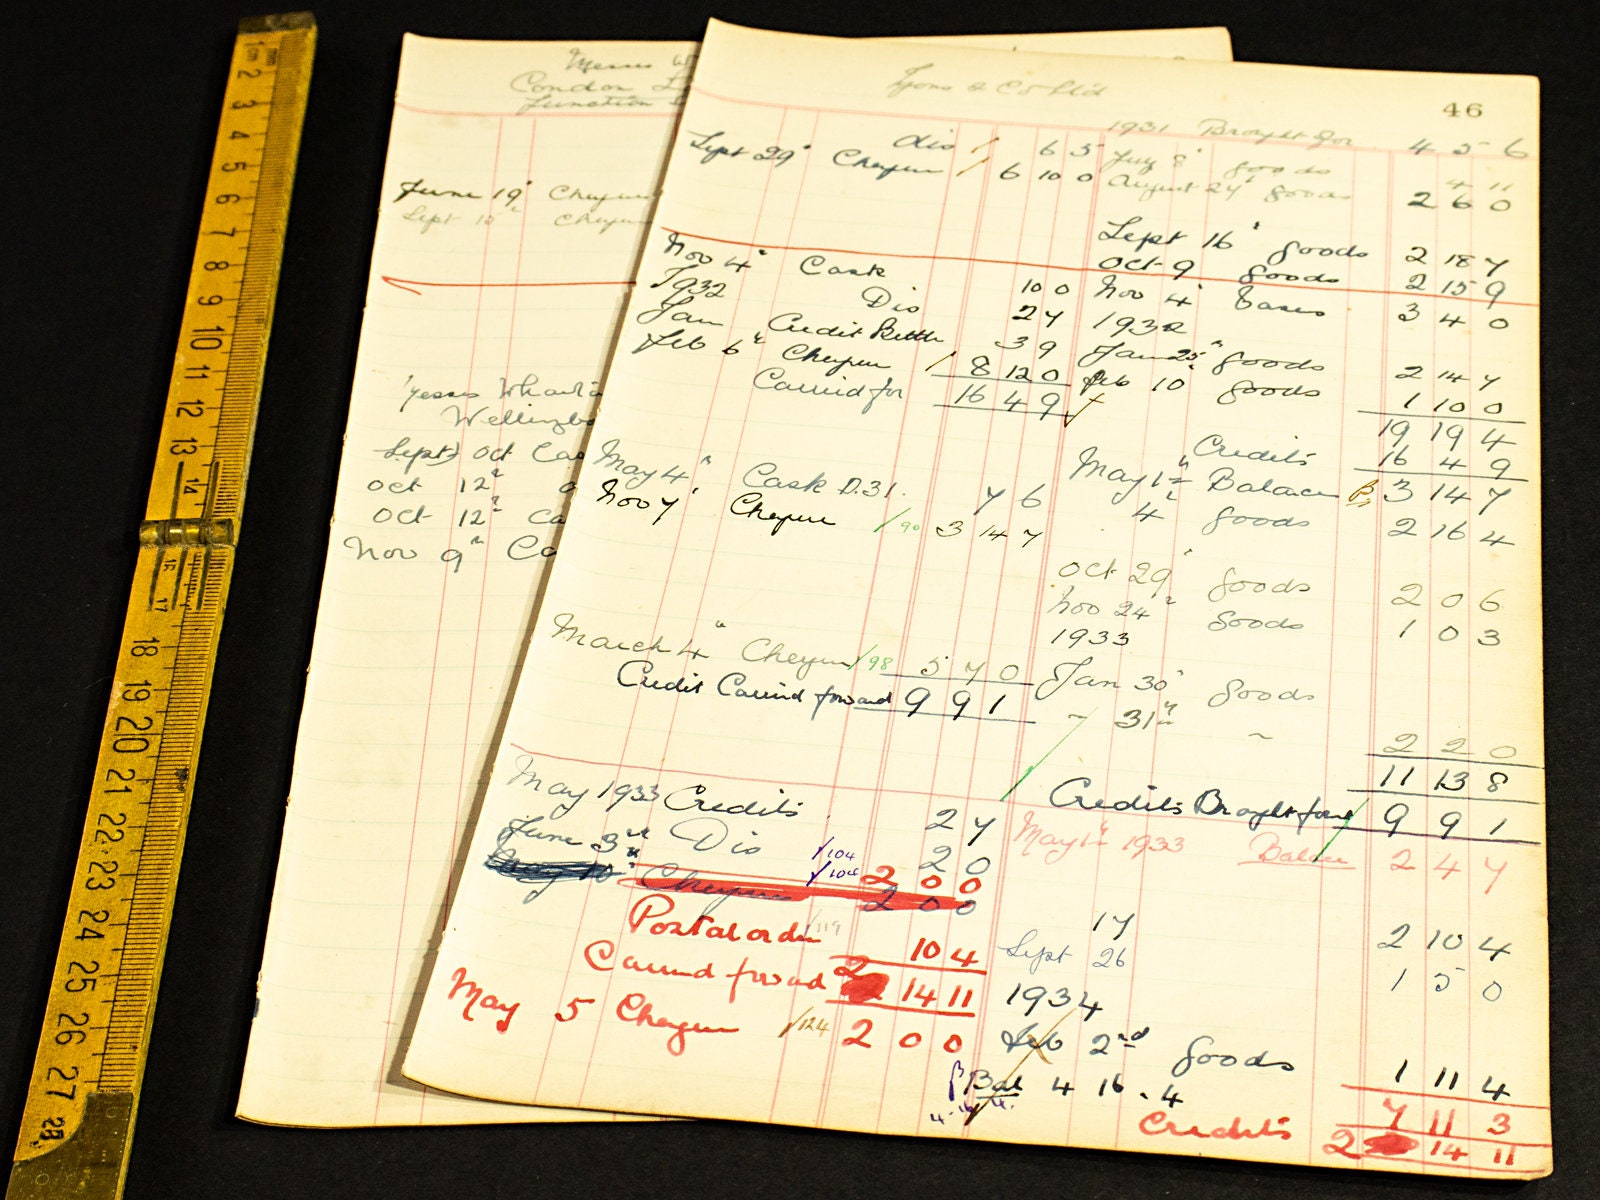 cm
2
3
4
5
6
7
8
9
10
11
12
13
14
16
17
18
19
20
21
22
23
24
25
26
27
28
Messrs
London
Junction
June 19" Cheque
Sept 12" Cheque
Wharf
Wellingbo
Sept Oct Cas
Oct 12"
Oct 12" Ca
Nov 9" Ca
Lyons & Co Ltd
46
1931 Brought for 4 5 6
Dis 6 5 July 8" goods 4 11
Sept 29" Cheque 6 10 0 August 24" goods 2 6 0
Sept 16" goods 2 18 7
Oct 9 goods 2 15 9
Nov 4" Cask 10 0 Nov 4" 3 4 0
1932 Dis 2 7 1932
Jan Credit 3 9 Jan 25" goods 2 14 7
Feb 6" Cheque 8 12 0 Feb 10 goods 1 10 0
Carried for 16 4 9 19 19 4
Credits 16 4 9
May 1st Balance 3 14 7
May 4" Cask D.31. 7 6 4" goods 2 16 4
Nov 7" Cheque /90 3 14 7
Oct 29" goods 2 0 6
Nov 24" goods 1 0 3
1933
March 4" Cheque /98 5 7 0 Jan 30" goods
Credit Carried forward 9 9 1 ~ 31st ~ 2 2 0
11 13 8
Credits Brought forw 9 9 1
May 1933 Credits 2 7 May 1st 1933 Balance 2 4 7
June 3rd Dis /104 2 0
/104 2 0 0
Cheque 2 0 0
17 2 10 4
Postal order /119 10 4 Sept 26 1 5 0
Carried forwad 2 14 11 1934
May 5 Cheque /124 2 0 0 Feb 2nd goods 1 11 4
Bal 4 16 . 4 7 11 3
4.16.4.
Credits 2 14 11